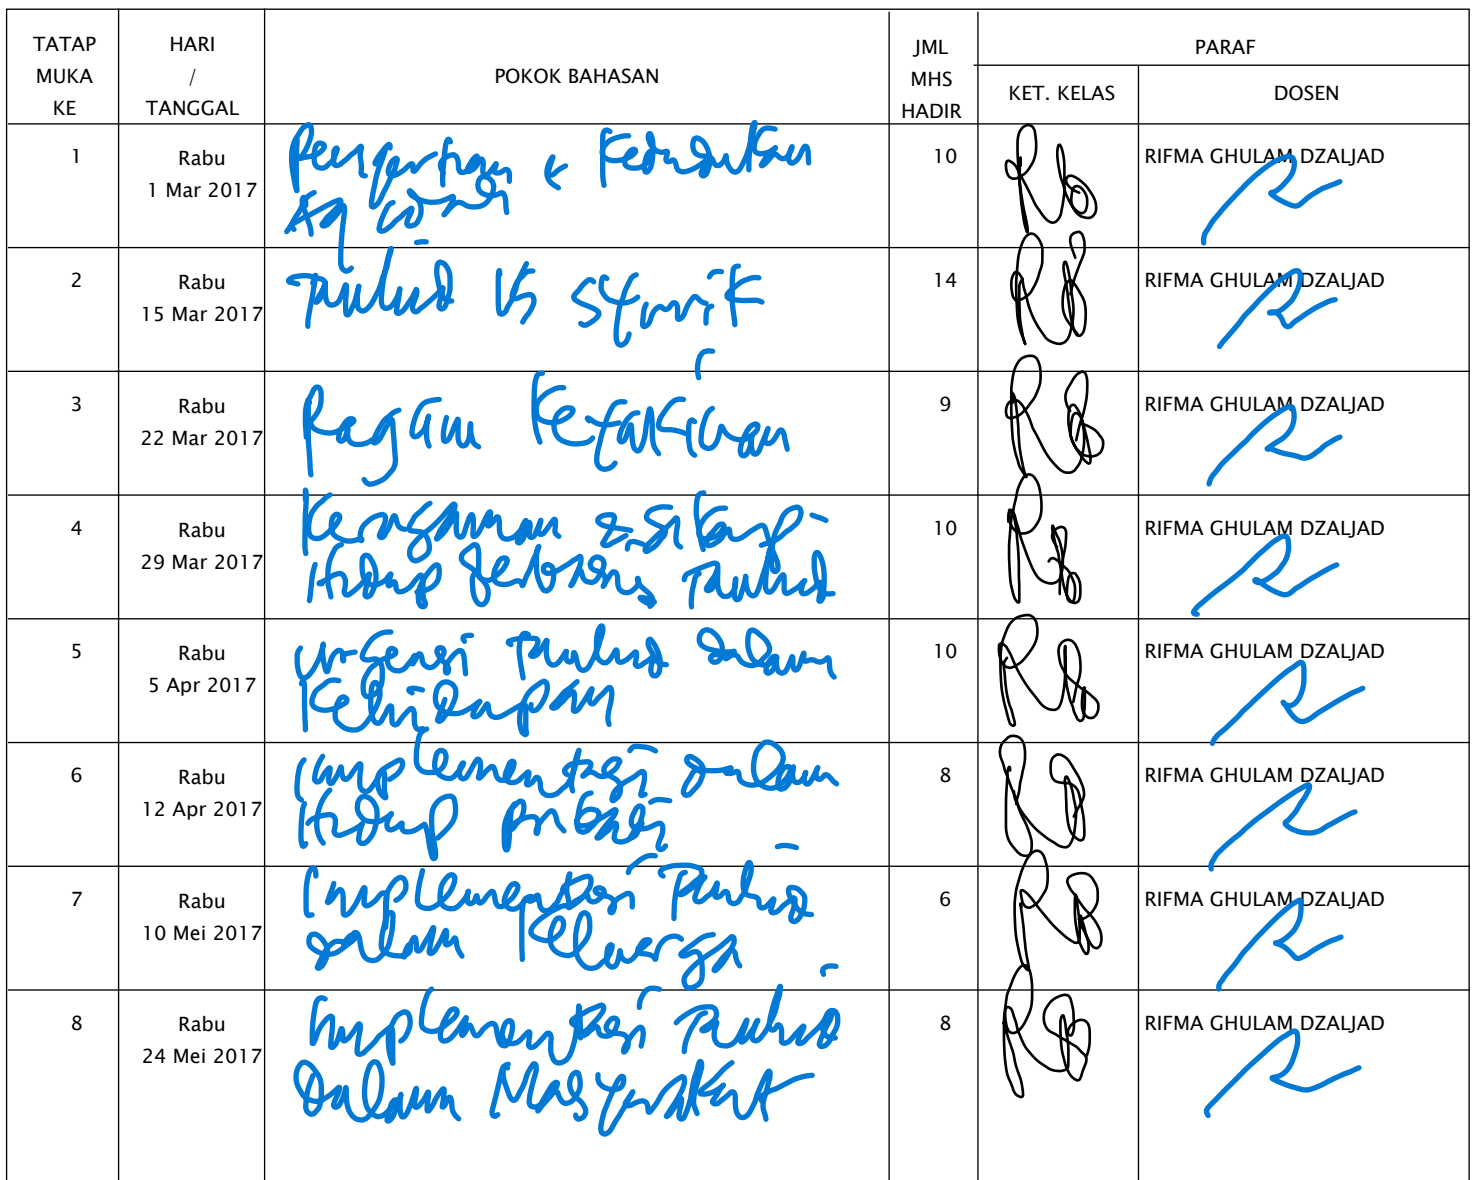 TATAP MUKA KE
HARI / TANGGAL
POKOK BAHASAN
JML MHS HADIR
PARAF
KET. KELAS
DOSEN
1
Rabu
1 Mar 2017
Pengertian & Kedudukan
Aqidah
10
RIFMA GHULAM DZALJAD
2
Rabu
15 Mar 2017
Tauhid Vs Syirik
14
RIFMA GHULAM DZALJAD
3
Rabu
22 Mar 2017
Ragam Keyakinan
9
RIFMA GHULAM DZALJAD
4
Rabu
29 Mar 2017
Keragaman & Sikap
Hidup Seorang Tauhid
10
RIFMA GHULAM DZALJAD
5
Rabu
5 Apr 2017
Urgensi Tauhid dalam
Kehidupan
10
RIFMA GHULAM DZALJAD
6
Rabu
12 Apr 2017
Implementasi dalam
Hidup Pribadi
8
RIFMA GHULAM DZALJAD
7
Rabu
10 Mei 2017
Implementasi Tauhid
dalam Keluarga
6
RIFMA GHULAM DZALJAD
8
Rabu
24 Mei 2017
Implementasi Tauhid
Dalam Masyarakat
8
RIFMA GHULAM DZALJAD